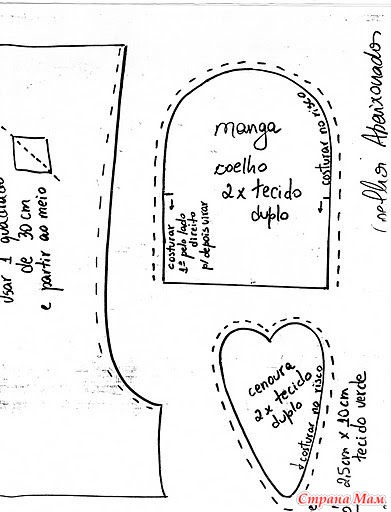 usar 1 quadrado
de 30 cm
e partir ao meio
manga
coelho
2 x tecido
duplo
costurar no risco
costurar
1º pelo lado
direito
p/ depois virar
Coelhos Apaixonados
cenoura
2 x tecido
duplo
costurar no risco
25cm x 10cm
tecido verde
Страна Мам